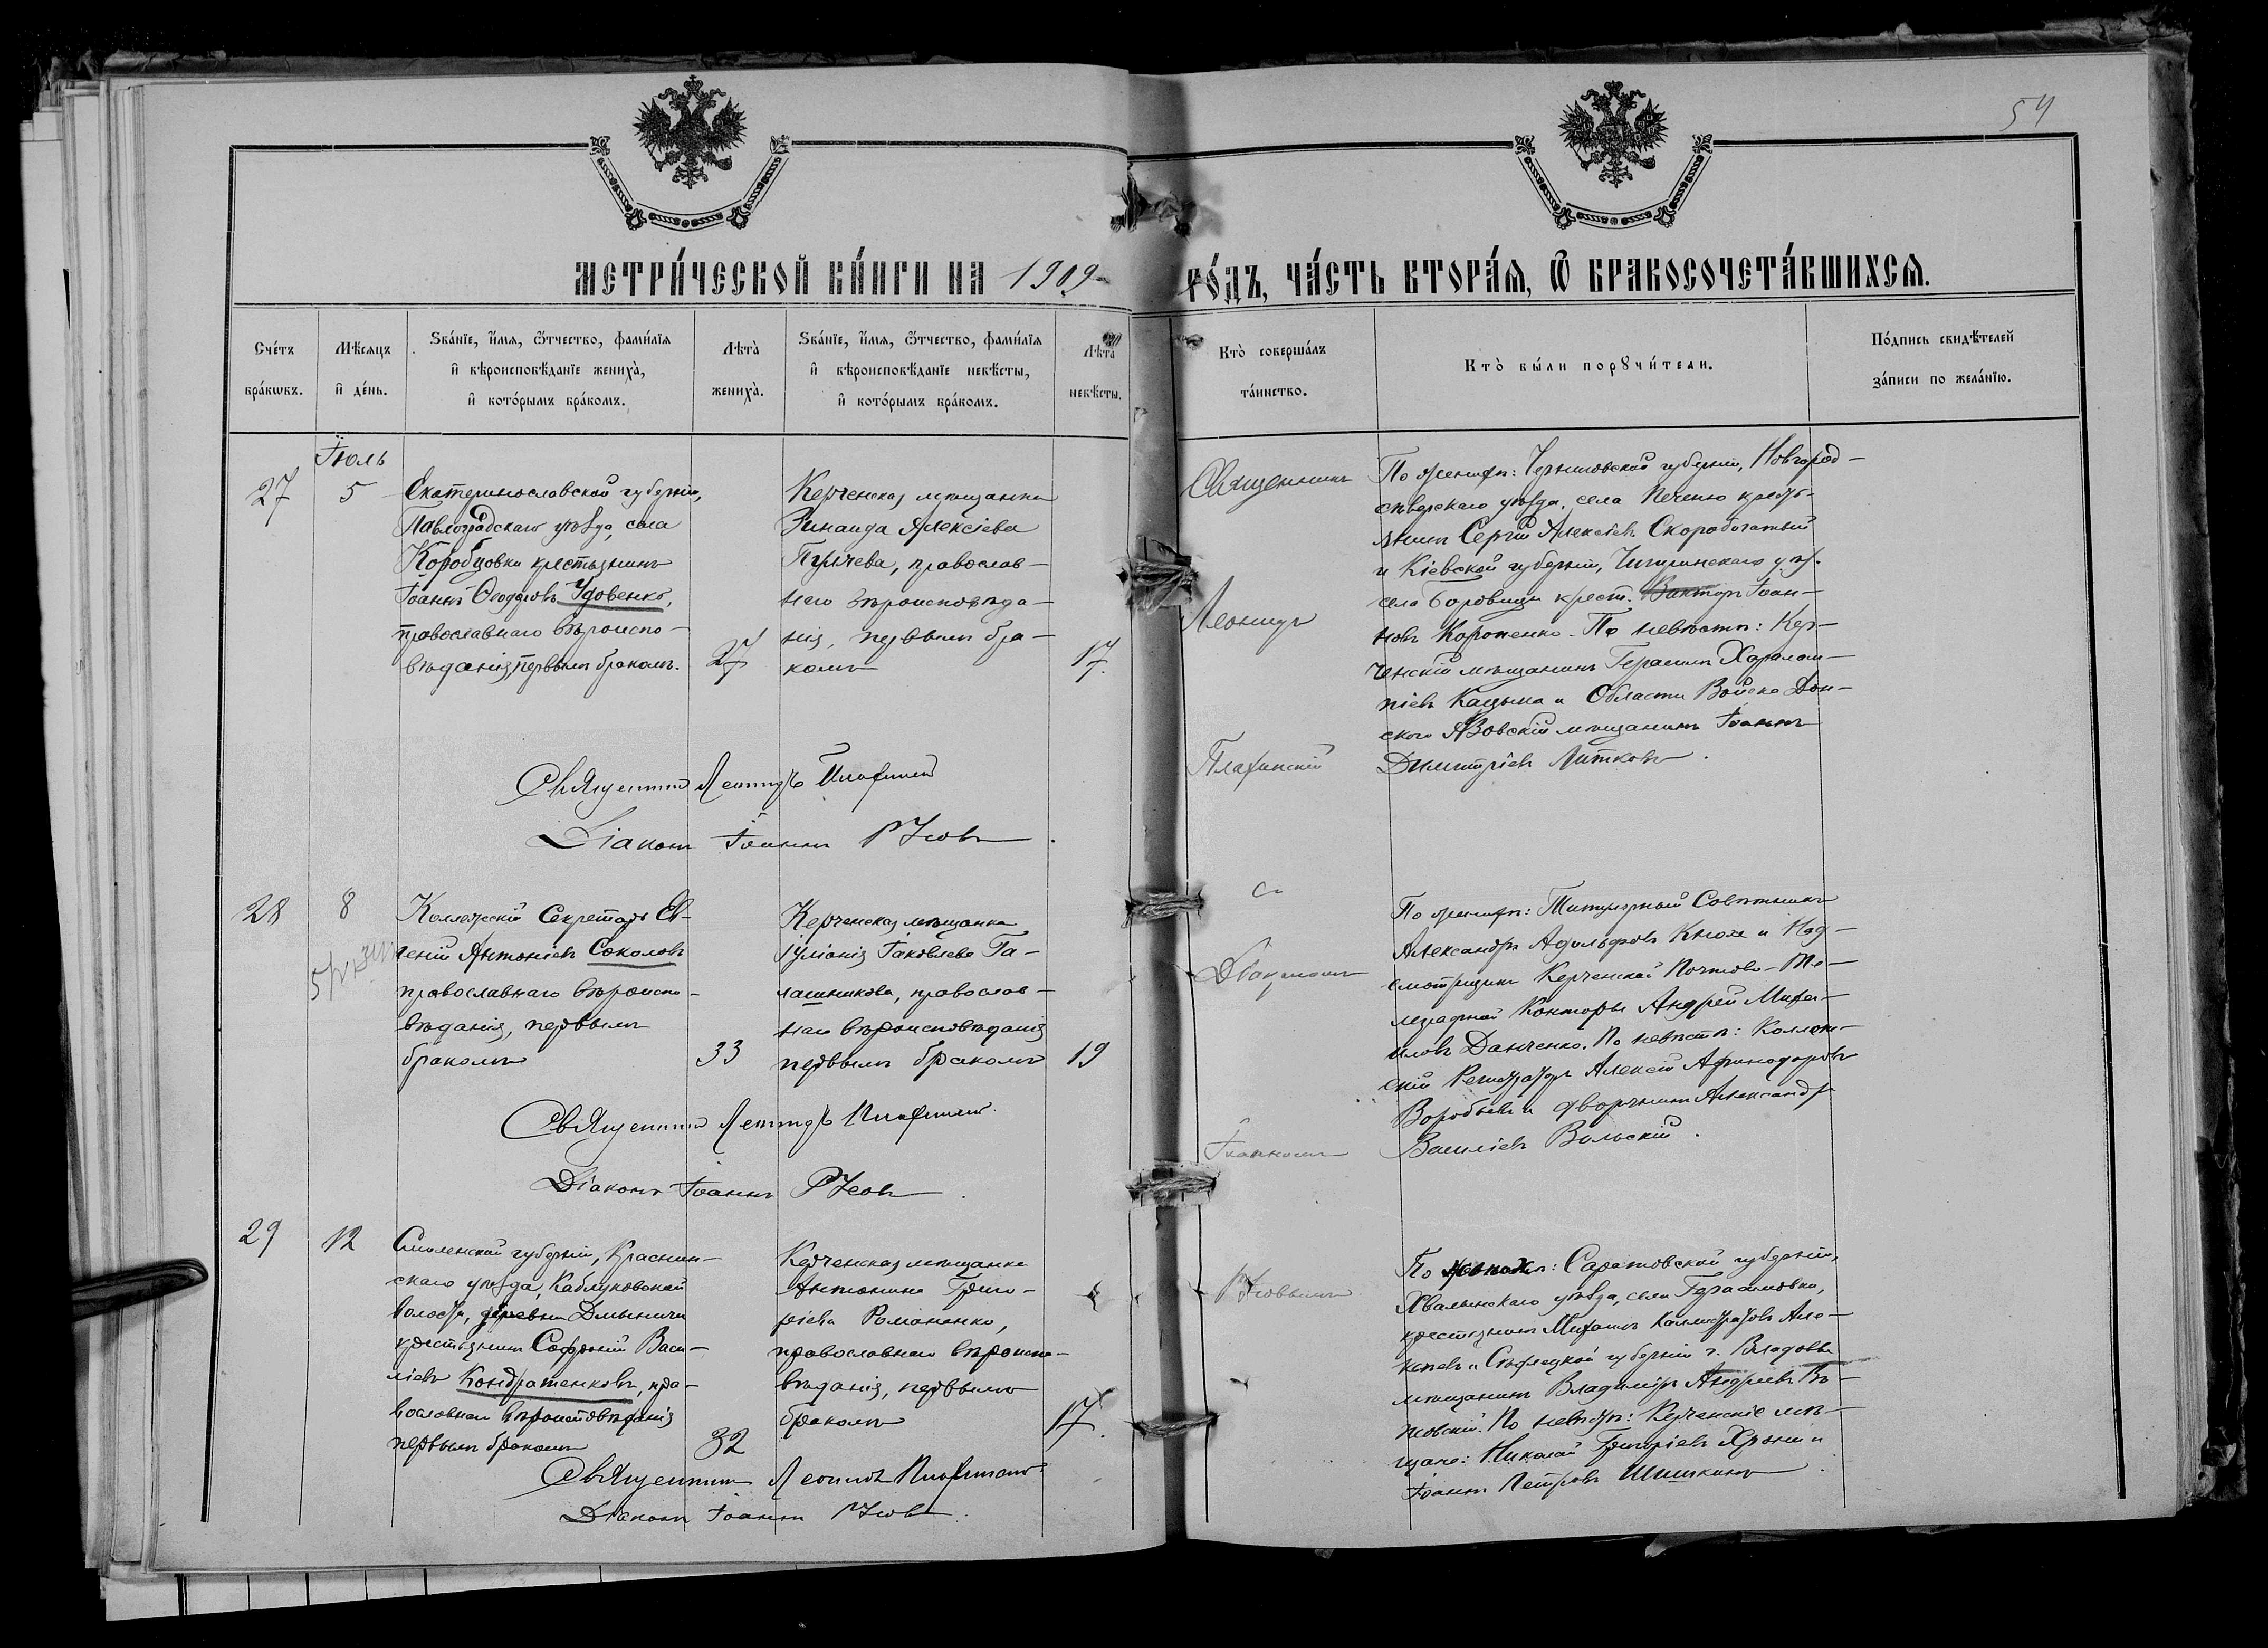 54
МЕТРИ́ЧЕСКОЙ КНИ́ГИ НА 1909 ГО́ДЪ, ЧА́СТЬ ВТОРА́Я, Ѿ БРАКОСОЧЕТА́ВШИХСЯ.
Сче́тъ бра́кѡвъ.
Мѣ́сяцъ и҆ де́нь.
Ѕва́нїе, и҆́мя, ѻ҆́тчество, фами́лїя
и҆ вѣроисповѣ́данїе жениха̀,
и҆ кото́рымъ бра́комъ.
Лѣта̀ жениха̀.
Ѕва́нїе, и҆́мя, ѻ҆́тчество, фами́лїя
и҆ вѣроисповѣ́данїе невѣ́сты,
и҆ кото́рымъ бра́комъ.
Лѣта̀ невѣ́сты.
Кто̀ соверша́лъ
та́инство.
Кто̀ бы́ли порꙋчи́тели.
По́дпись свидѣ́телей
за́писи по жела́нїю.
Іюль
27
5
Екатеринославской губерніи,
Павлоградскаго уѣзда, села
Коробцовки крестьянинъ
Іоаннъ Ѳеодоровъ Удовенко,
православнаго вѣроиспо-
вѣданія, первымъ бракомъ.
27
Керченская мѣщанка
Зинаида Алексіева
православ-
наго вѣроисповѣда-
нія, первымъ бра-
комъ
17.
Священникъ
Леонидъ
По женихѣ: Черниговской губерніи, Новгород-
сѣверскаго уѣзда, села Печеню кресть-
янинъ Сергій Алексіевъ Скоробогатый
и Кіевской губерніи, Чигиринскаго у.
село Боровицы крест. Викторъ Іоан-
новъ Короненко. По невѣстѣ: Кер-
ченскій мѣщанинъ Герасимъ Харалам-
піевъ и Области Войска Дон-
ского Азовскій мѣщанинъ Іоаннъ
Димитріевъ Литковъ.
Священникъ Леонидъ
Діаконъ Іоаннъ
28
8
Коллежскій Секретарь Ев-
геній Антоніевъ Соколовъ
православнаго вѣроиспо-
вѣданія, первымъ
бракомъ
33
Керченская мѣщанка
Іуліанія Іаковлева Га-
лашникова, православ-
наго вѣроисповѣданія
первымъ бракомъ
19
съ
Діакономъ
Іоанномъ
По женихѣ: Титулярный Совѣтникъ
Александръ Адольфовъ и Над-
смотрщикъ Керченской Почтово-Те-
леграфной Конторы Андрей Миха-
иловъ Данченко. По невѣстѣ: Коллеж-
скій Регистраторъ Алексій Афинодоровъ
Воробьевъ и дворянинъ Александръ
Василіевъ Вольскій.
Священникъ Леонидъ
Діаконъ Іоаннъ
29
12
Смоленской губерніи, Краснин-
скаго уѣзда, Каблуковской
волости, деревни Дмыничи
крестьянинъ Софроній Васи-
ліевъ Кондратенковъ, пра-
вославнаго вѣроисповѣданія
первымъ бракомъ
32
Керченская мѣщанка
Антонина Григо-
ріева Романенко,
православнаго вѣроиспо-
вѣданія, первымъ
бракомъ
17.
По женихѣ: Саратовской губерніи,
Хвалынскаго уѣзда, села Герасимовки,
крестьянинъ Михаилъ Каллистратовъ Але-
и Сѣдлецкой губерніи г. Влодавы
мѣщанинъ Владиміръ Андреевъ
По невѣстѣ: Керченскіе мѣ-
щане: Николай Григоріевъ и
Іоаннъ Петровъ Шишкинъ.
Священникъ Леонидъ
Діаконъ Іоаннъ